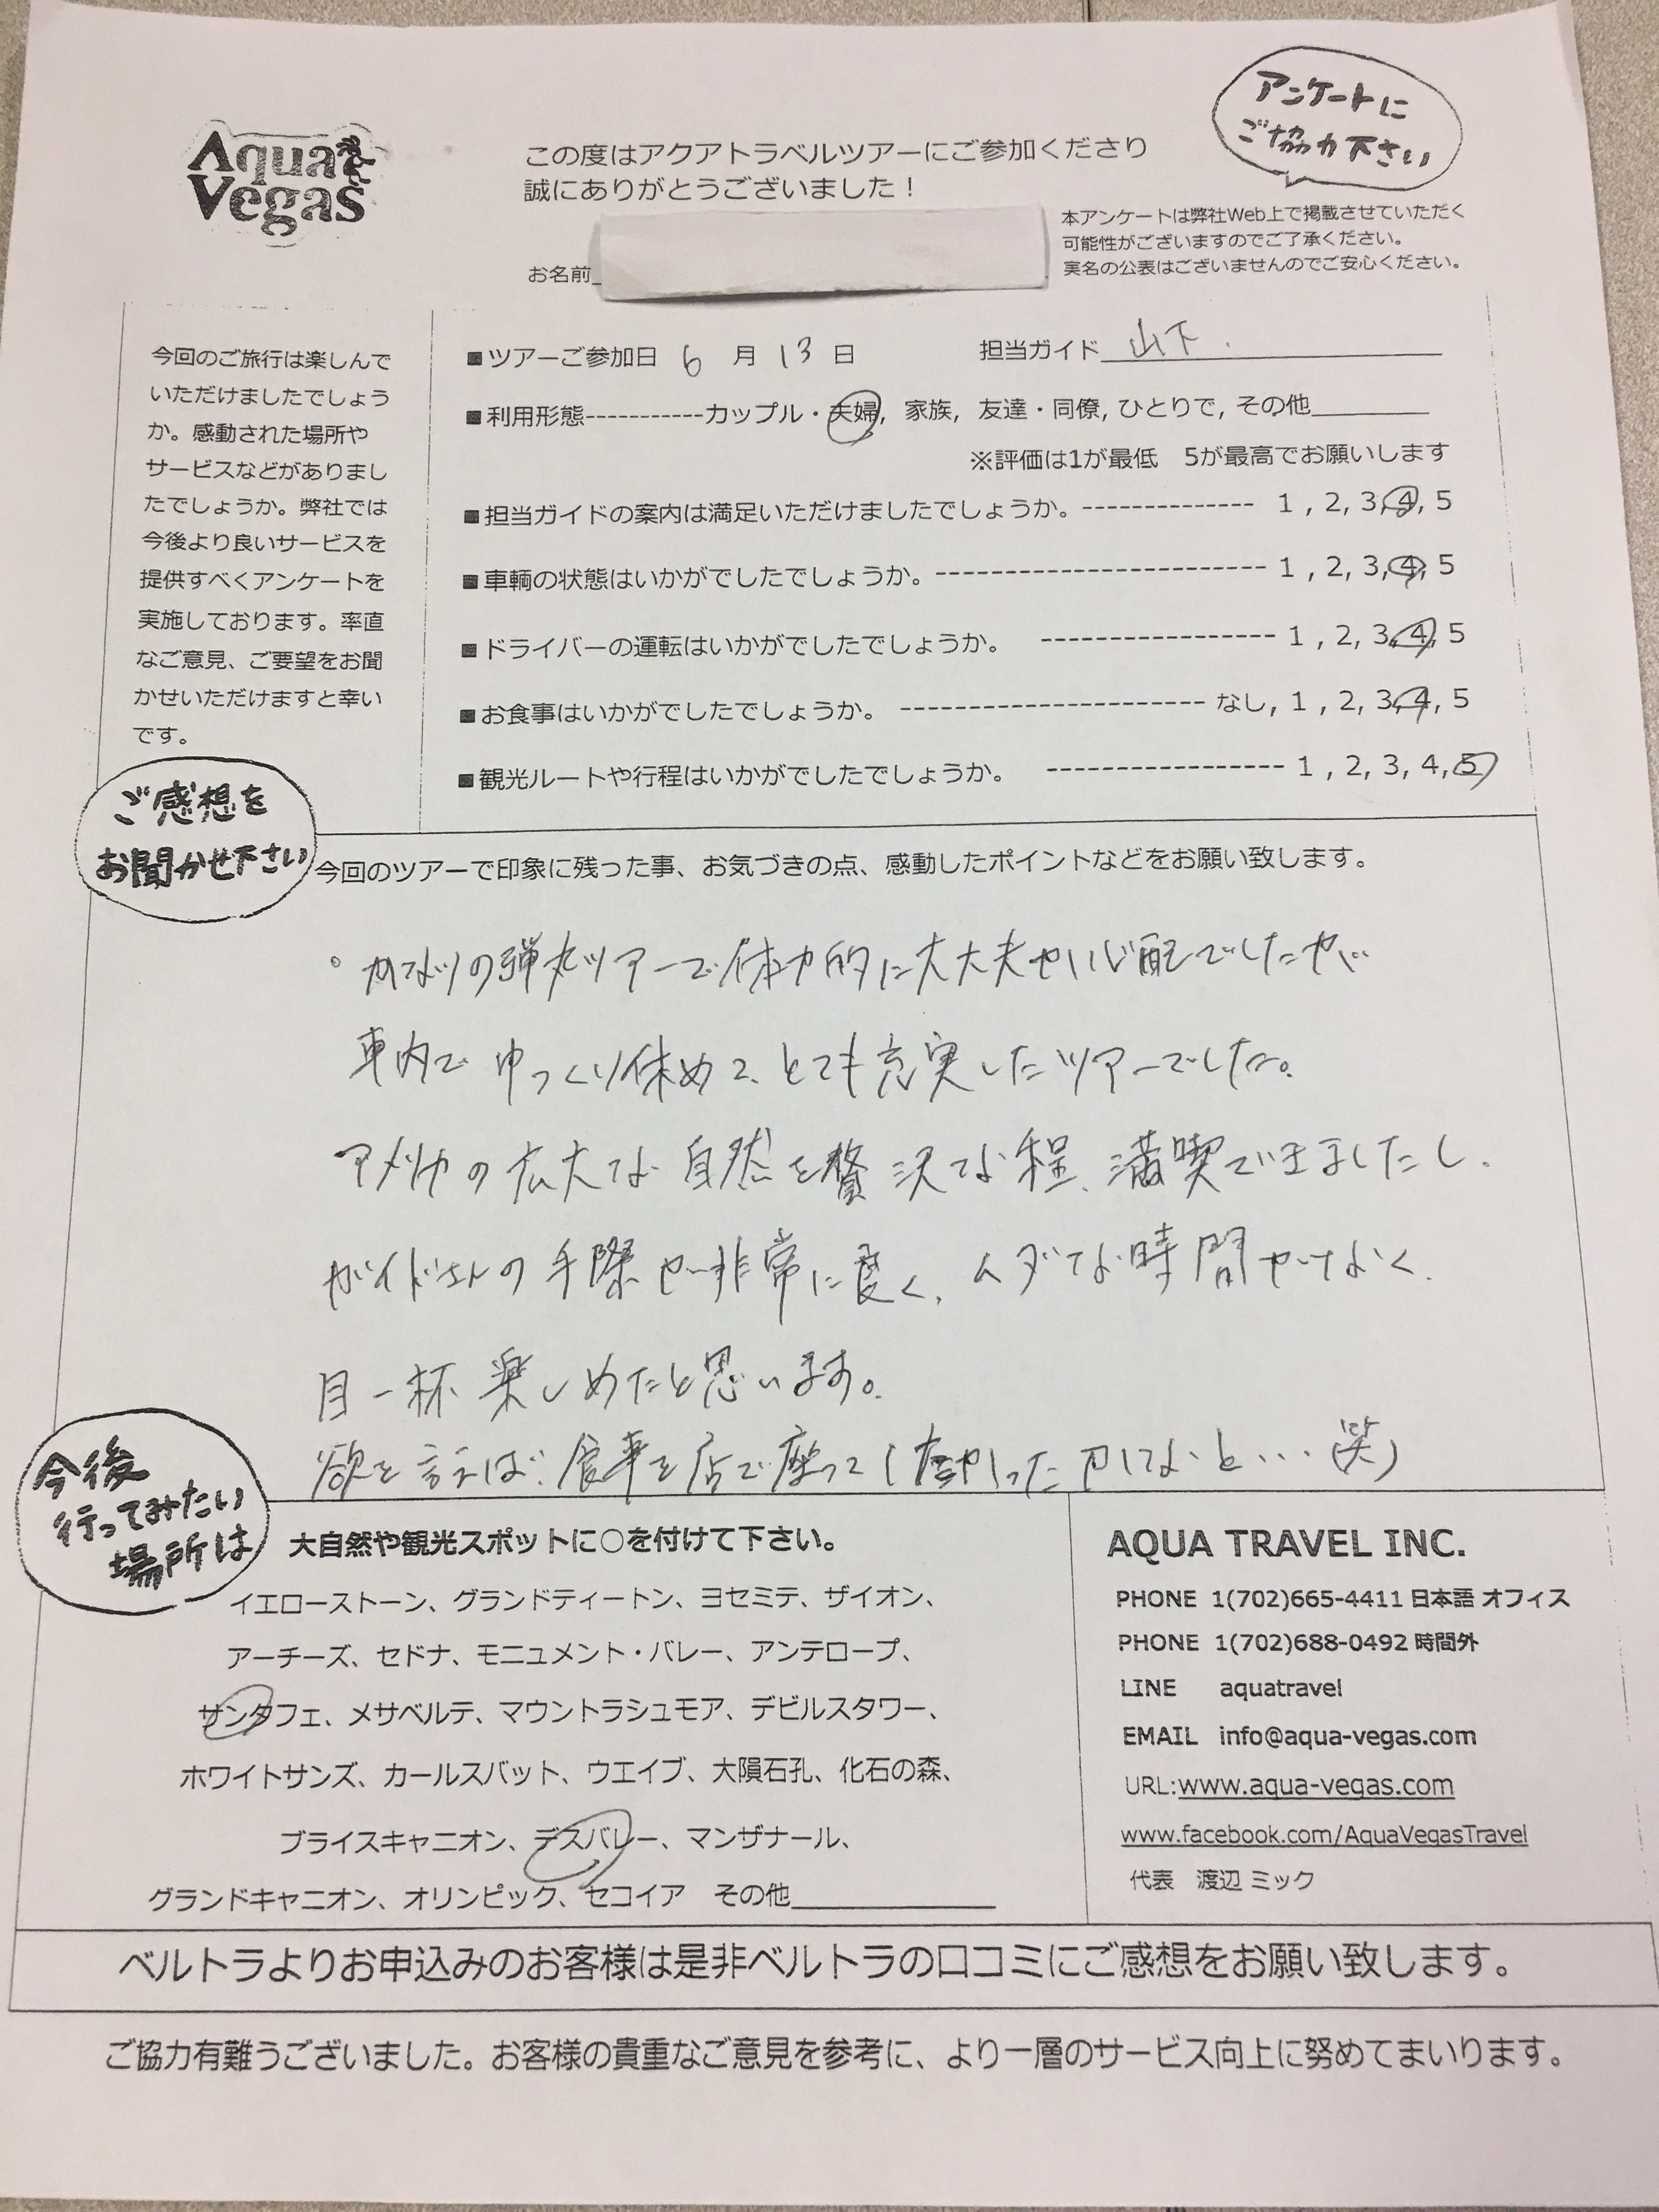 Aqua
Vegas
この度はアクアトラベルツアーにご参加くださり
誠にありがとうございました！
アンケートに
ご協力下さい
本アンケートは弊社Web上で掲載させていただく
可能性がございますのでご了承ください。
実名の公表はございませんのでご安心ください。
お名前
今回のご旅行は楽しんで
いただけましたでしょう
か。感動された場所や
サービスなどがありまし
たでしょうか。弊社では
今後より良いサービスを
提供すべくアンケートを
実施しております。率直
なご意見、ご要望をお聞
かせいただけますと幸い
です。
■ツアーご参加日 6 月 13 日 担当ガイド 山下
■利用形態-----------カップル・夫婦, 家族, 友達・同僚, ひとりで, その他
※評価は1が最低 5が最高でお願いします
■担当ガイドの案内は満足いただけましたでしょうか。------------- 1 , 2, 3, 4, 5
■車輌の状態はいかがでしたでしょうか。------------------------- 1 , 2, 3, 4, 5
■ドライバーの運転はいかがでしたでしょうか。 ----------------- 1 , 2, 3, 4, 5
■お食事はいかがでしたでしょうか。 ---------------------- なし, 1 , 2, 3, 4, 5
■観光ルートや行程はいかがでしたでしょうか。 ----------------- 1 , 2, 3, 4, 5
ご感想を
お聞かせ下さい
今回のツアーで印象に残った事、お気づきの点、感動したポイントなどをお願い致します。
。かなりの弾丸ツアーで体力的に大丈夫か心配でしたが
車内でゆっくり休めて、とても充実したツアーでした。
アメリカの広大な自然を贅沢な程、満喫できましたし、
ガイドさんの手際が非常に良く、ムダな時間がなく、
目一杯楽しめたと思います。
欲を言えば、食事を店で座って
今後
行ってみたい
場所は
大自然や観光スポットに○を付けて下さい。
イエローストーン、グランドティートン、ヨセミテ、ザイオン、
アーチーズ、セドナ、モニュメント・バレー、アンテロープ、
サンタフェ、メサベルテ、マウントラシュモア、デビルスタワー、
ホワイトサンズ、カールスバット、ウエイブ、大隕石孔、化石の森、
ブライスキャニオン、デスバレー、マンザナール、
グランドキャニオン、オリンピック、セコイア その他
AQUA TRAVEL INC.
PHONE 1(702)665-4411 日本語 オフィス
PHONE 1(702)688-0492 時間外
LINE aquatravel
EMAIL info@aqua-vegas.com
URL:www.aqua-vegas.com
www.facebook.com/AquaVegasTravel
代表 渡辺 ミック
ベルトラよりお申込みのお客様は是非ベルトラの口コミにご感想をお願い致します。
ご協力有難うございました。お客様の貴重なご意見を参考に、より一層のサービス向上に努めてまいります。